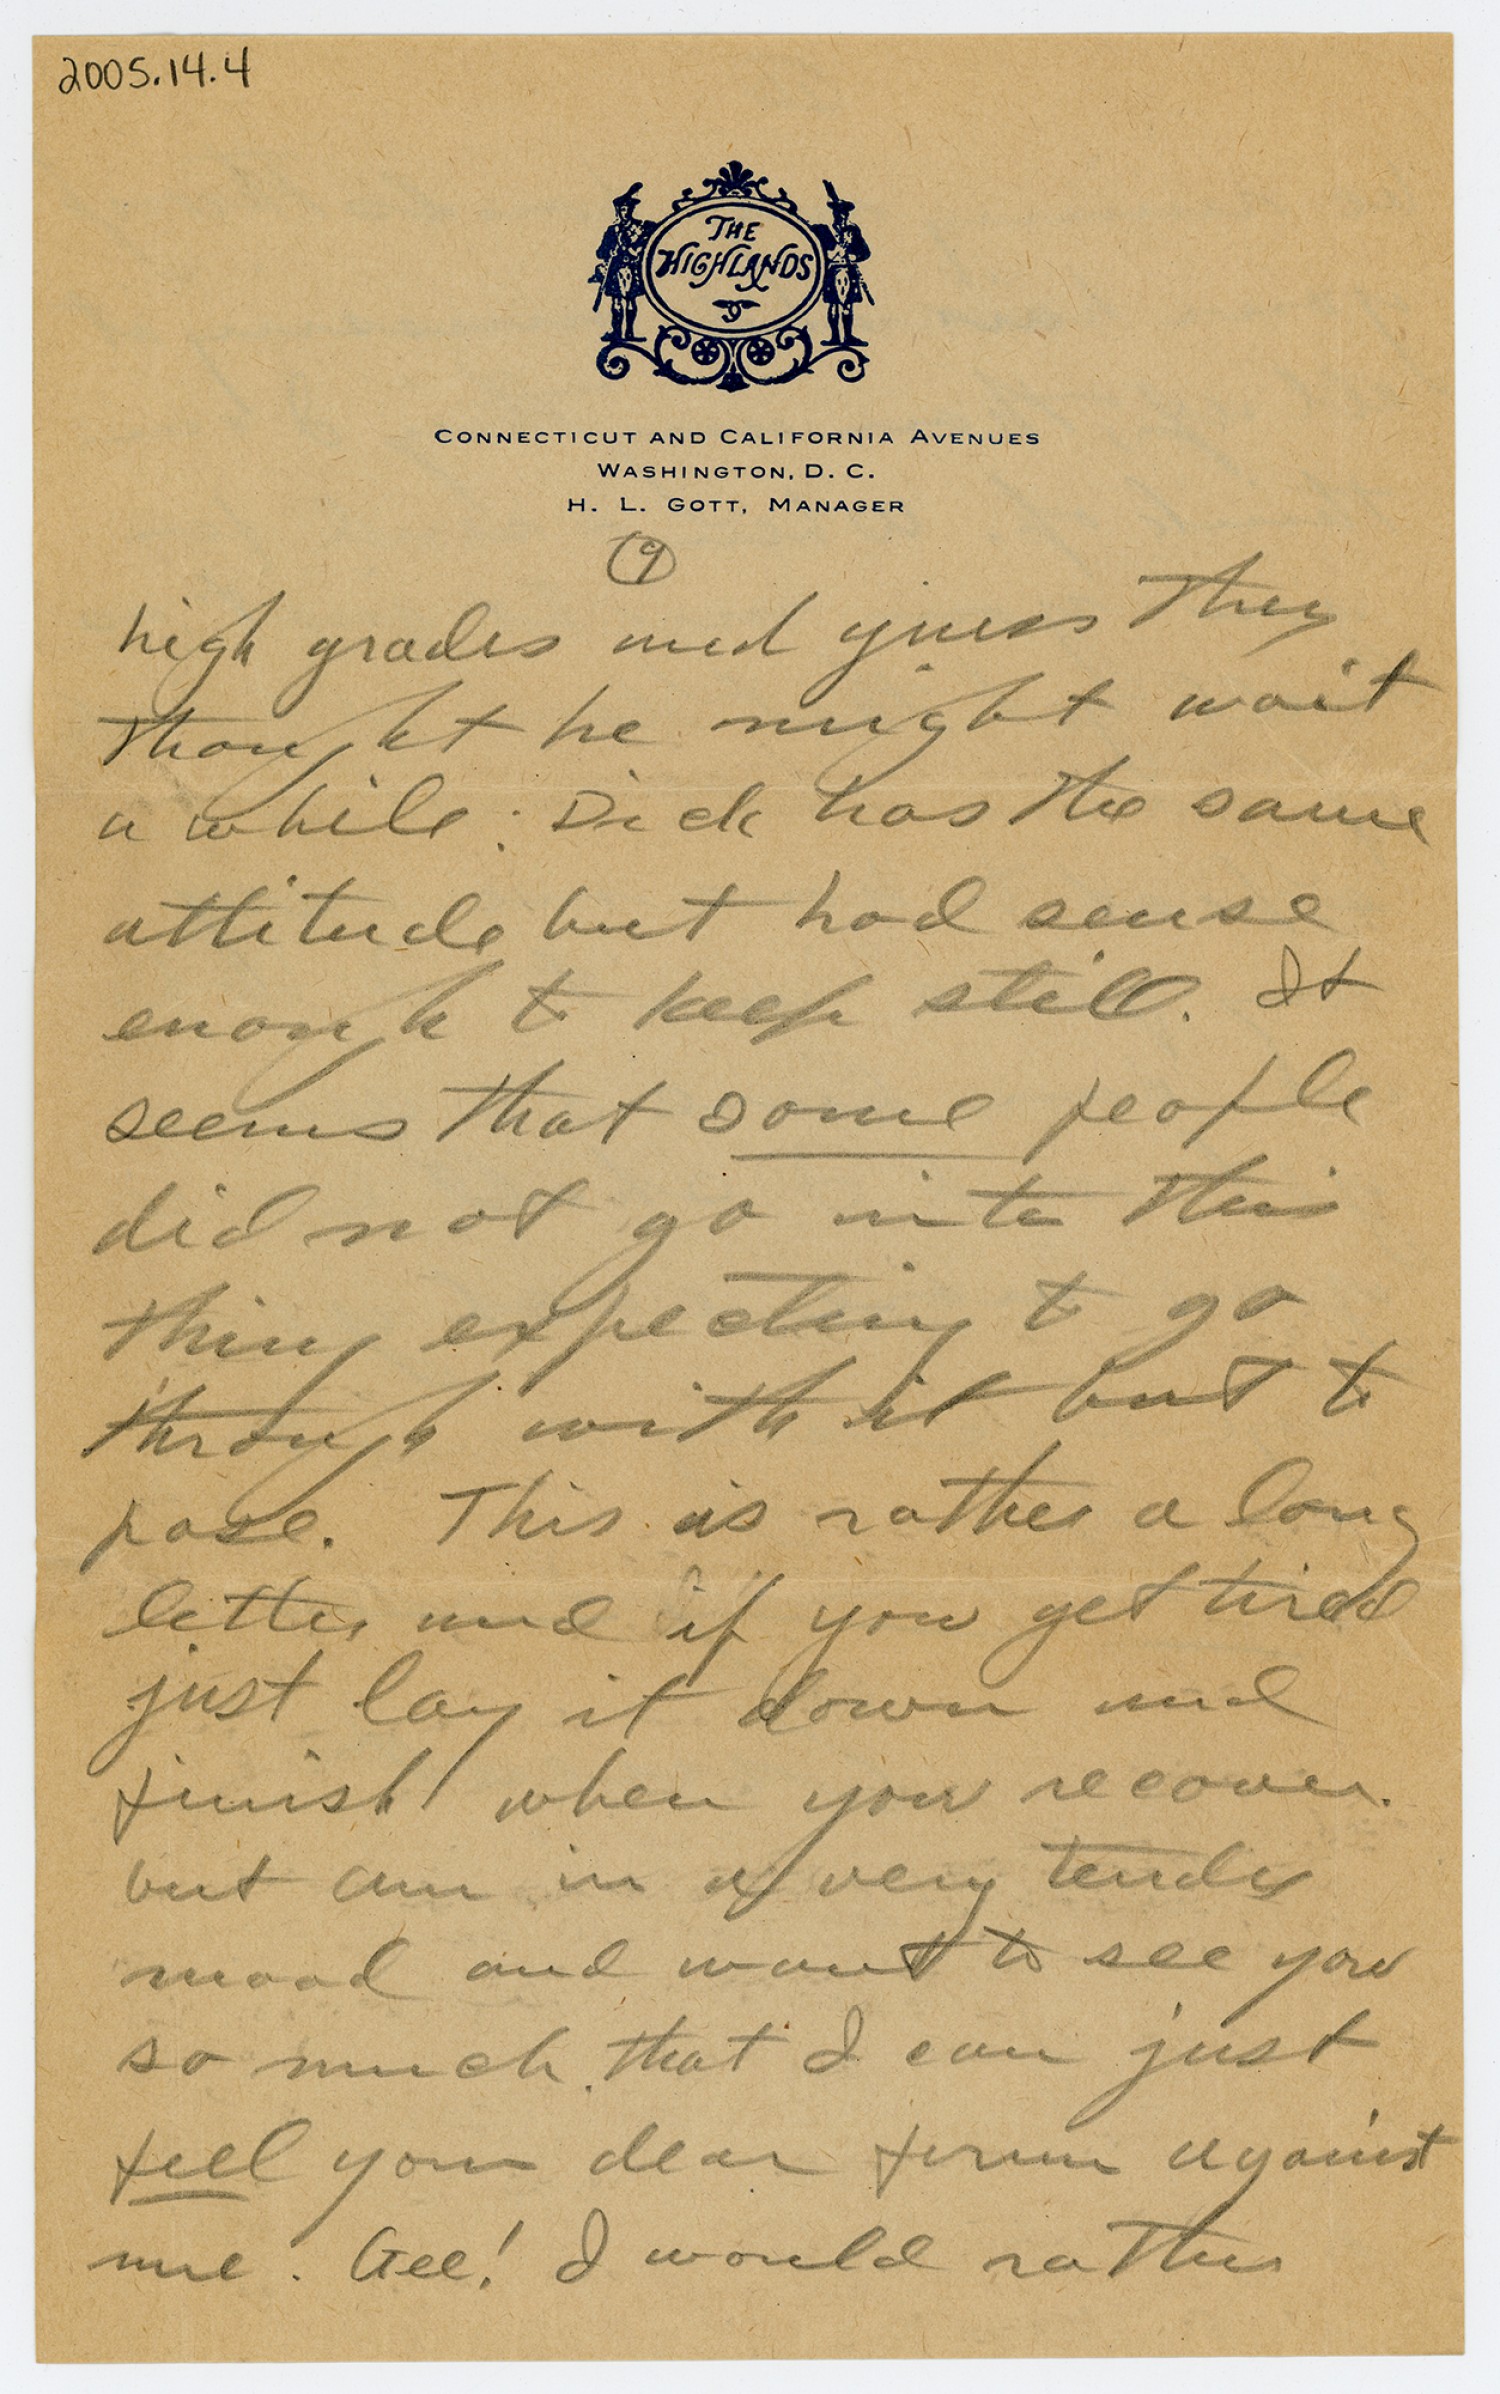 2005.14.4
THE
HIGHLANDS
CONNECTICUT AND CALIFORNIA AVENUES
WASHINGTON, D. C.
H. L. GOTT, MANAGER
9
high grades and guess they
thought he might wait
a while. Dick has the same
attitude but had sense
enough to keep still. It
seems that some people
did not go into this
thing expecting to go
through with it but to
pose. This is rather a long
letter and if you get tired
just lay it down and
finish when you recover.
but am in a very tender
mood and want to see you
so much that I can just
feel your dear form against
me. Gee! I would rather